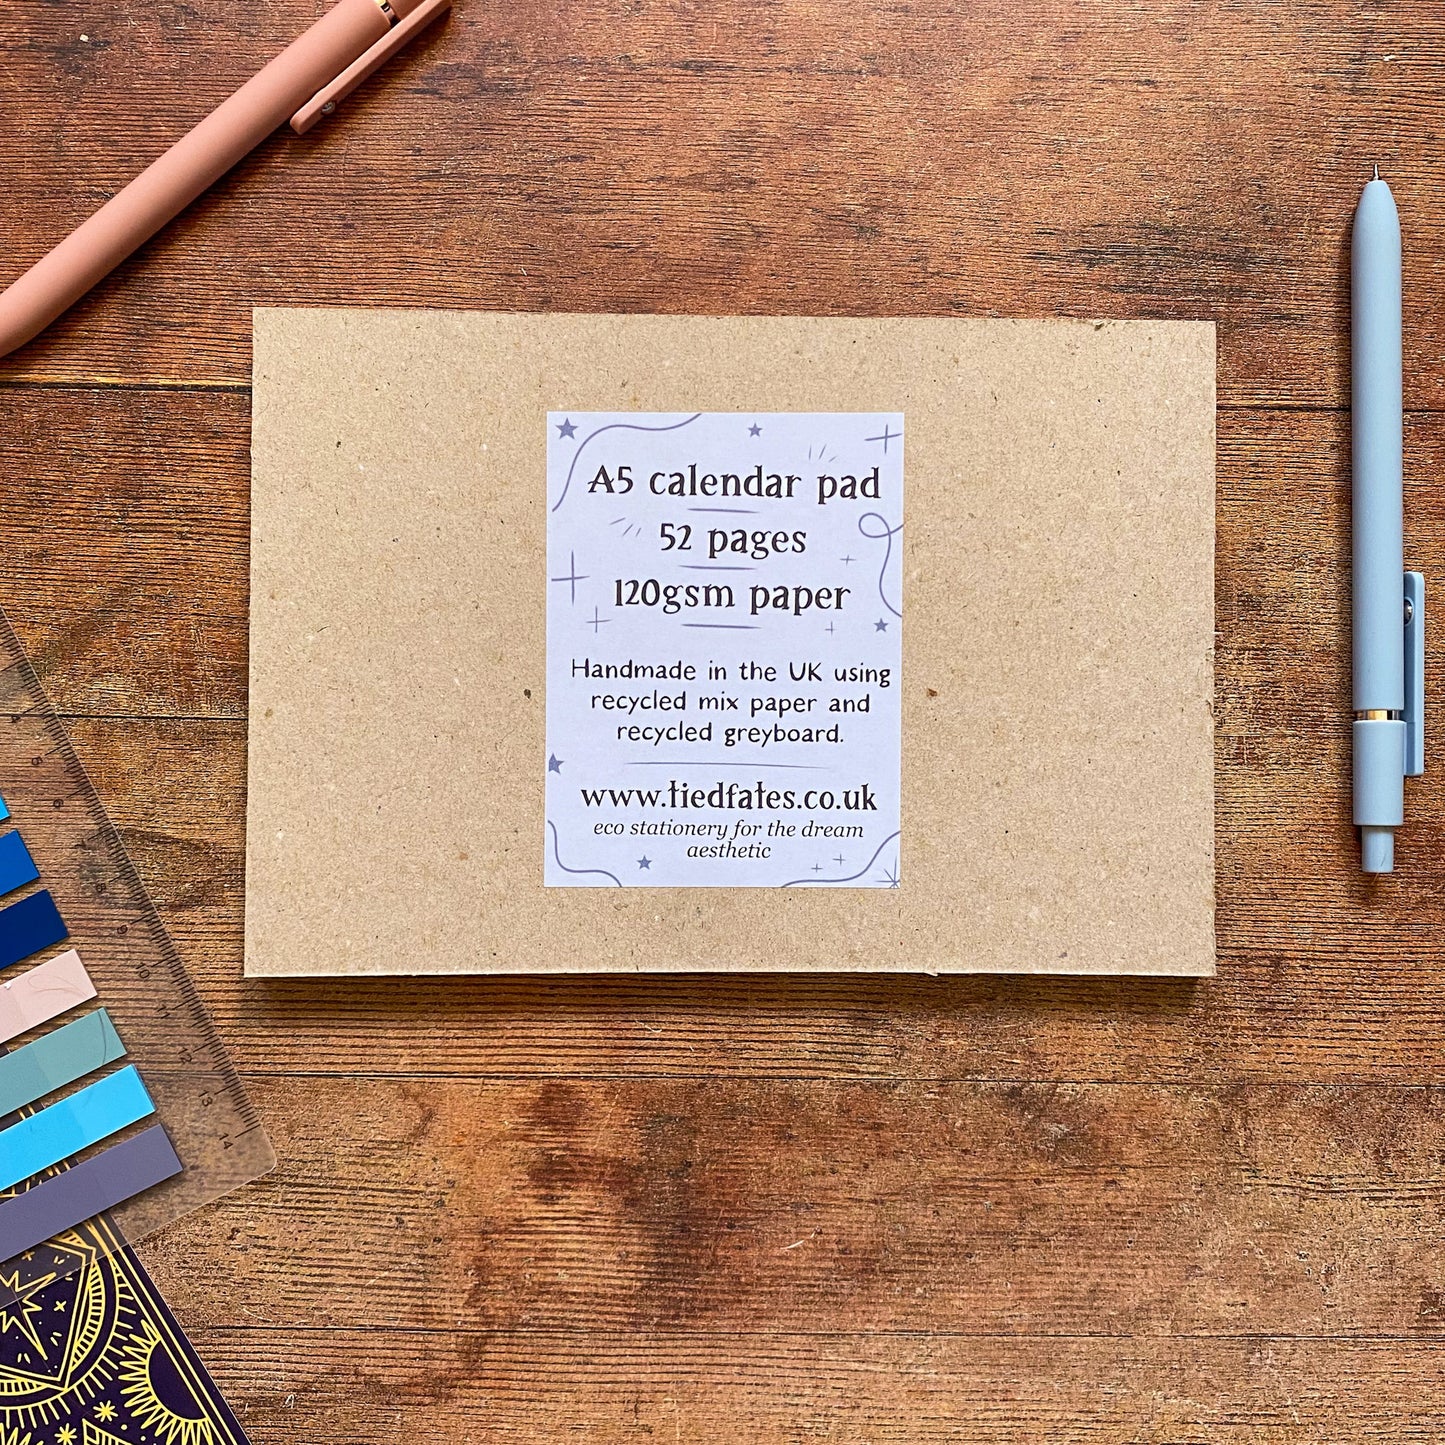 A5 calendar pad
52 pages
120gsm paper
Handmade in the UK using
recycled mix paper and
recycled greyboard.
www.tiedfates.co.uk
eco stationery for the dream
aesthetic
5
6
7
8
9
10
11
12
13
14